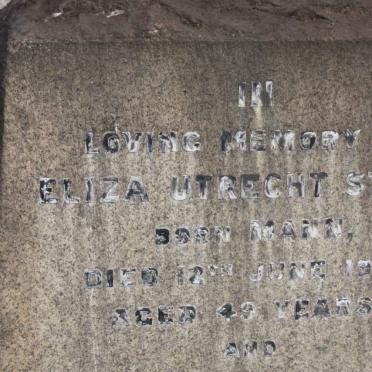 IN
LOVING MEMORY
ELIZA UTRECHT
BORN MANN,
DIED 12TH JUNE
AGED 49 YEARS
AND